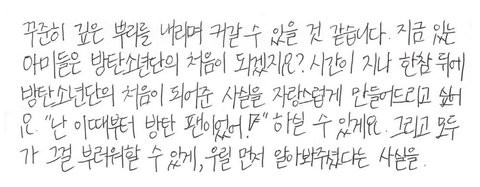 꾸준히 깊은 뿌리를 내리며 커갈 수 있을 것 같습니다. 지금 있는
아미들은 방탄소년단의 처음이 되겠지요? 시간이 지나 한참 뒤에
방탄소년단의 처음이 되어준 사실을 자랑스럽게 만들어드리고 싶어
요. "난 이때부터 방탄 팬이었어!!" 하실 수 있게요. 그리고 모두
가 그걸 부러워할 수 있게, 우릴 먼저 알아봐주셨다는 사실을.